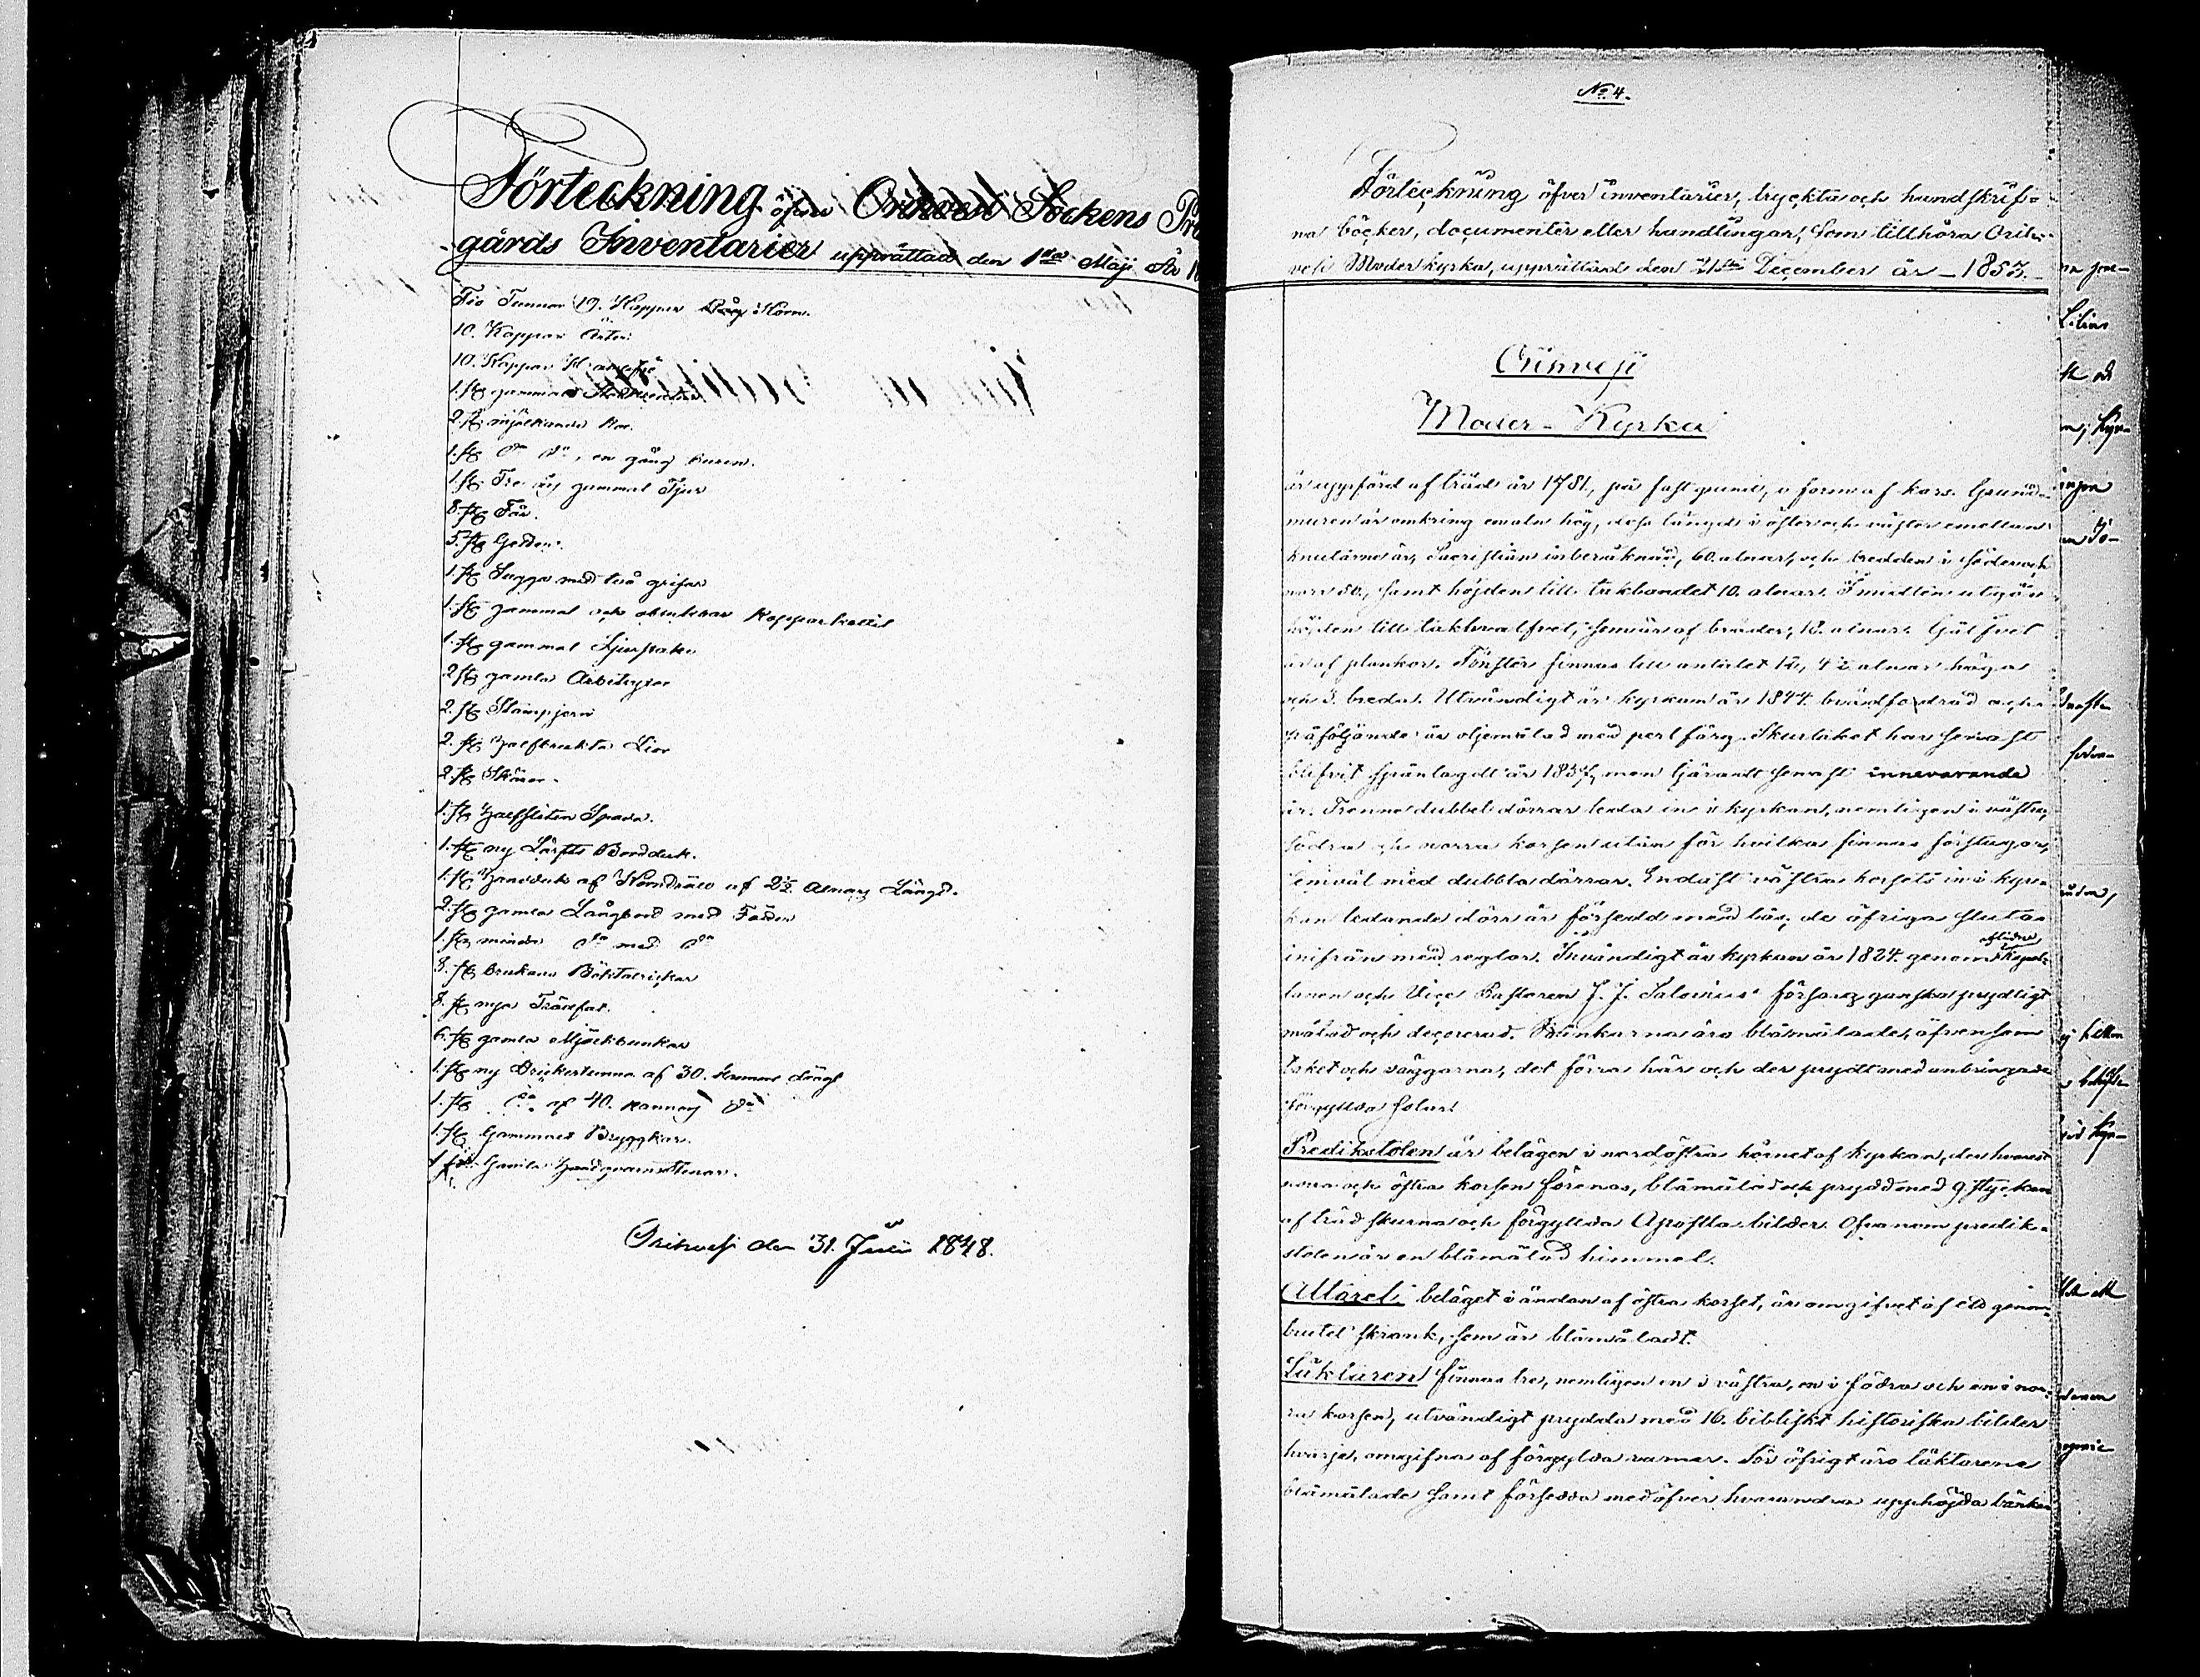 Förteckning öfver Orihvesi Sockens Pre
gårds Inventarier upprättad den 1sta Maji År 1
Tio Tunnor 19. Kappar Råg Korn.
10. Kappar Ärter
10. Kappar
1. st gammal
2. st mjölkande Kor.
1. st do do, en gång buren.
1. st Tre års gammal Tjur
8. st Får.
5. st Getter.
1. st Sugga med två grisar
1. st gammal och obrukbar Kopparkettil
1. st gammal
2 st gamla Arbets
2. st Stampjern
2. st halfbrukta Liar
2. st Skäror
1. st halfsliten Spada.
1. st ny Lärfts Bordduk.
1. st Handduk af af 2½ alnars Längd.
2. st gamla Långbord med Fötter
1. st mindre do med do
8. st brukana
8. st nya Träfat.
6. st gamla Mjölkbunkar
1. st ny Drickestunna af 30. kannors drägt
1. st do af 40. kannors do
1. st Gammalt Bryggkar.
1 Gamla Handqvarnstenar.
Orihvesi den 31. Juli 1848.
No 4.
Förteckning öfver inventarier, tryckta och handskrif-
na böcker, documenter eller handlingar, som tillhöra Orih-
vesi Moderkyrka, upprättad den 21sta December år 1857.
Orihvesi
Moder-Kyrka
är uppförd af träd år 1781, på fast grund, i form af kors. Grund-
muren är omkring en aln hög, dess längd i öster och väster emellan
knutarne är, Sacristian inberäknad, 60. alnar, och bredden i söder och
norr 50., samt höjden till takbandet 10. alnar. Imedlertid utgör
höjden till takhvalfvet, som är af bräder, 18. alnar. Golfvet
är af plankor. Fönster finnas till antalet 12, 4½ alnar höga
och 3. breda. Utvändigt är kyrkan år 1844. brädfodrad och
påföljande år oljemålad med perlfärg. Skurtaket har senast
blifvit spånlagdt år 1837, men tjäradt senast innevarande
år. Trenne dubbel dörrar leda in i kyrkan, nemligen i västra,
södra och norra korsen utan för hvilka finnas förstugor,
jemväl med dubbla dörrar. Endast västra korsets in i kyr-
kan ledande dörr är försedd med lås; de öfriga slutas
inifrån med reglor. Invändigt är kyrkan år 1824. genom aflidne Kapel-
lanen och Vice Pastoren J. J. Salonius' försorg ganska prydligt
målad och decorerad. Bänkarna äro blåmålade, äfvensom
taket och väggarna, det förra här och der prydt med anbringade
förgyllda solar.
Predikstolen är belägen i nordöstra hörnet af kyrkan, der hvarest
norra och östra korsen förenas, blåmålad och prydd med 9 stycken
af träd skurna och förgyllda Apostla bilder. Ofvanom predik-
stolen är en blåmålad himmel.
Altaret, beläget i ändan af östra korset, är omgifvet af ett genom-
brutet skrank, som är blåmåladt.
Läktaren finnas tre, nemligen en i västra, en i södra och en i nor-
ra korsen, utvändigt prydda med 16. bibliskt historiska bilder
hvarje, omgifna af förgyllda ramar. För öfrigt äro läktarene
blåmålade samt försedda med öfver hvarandra upphöjda bänkar